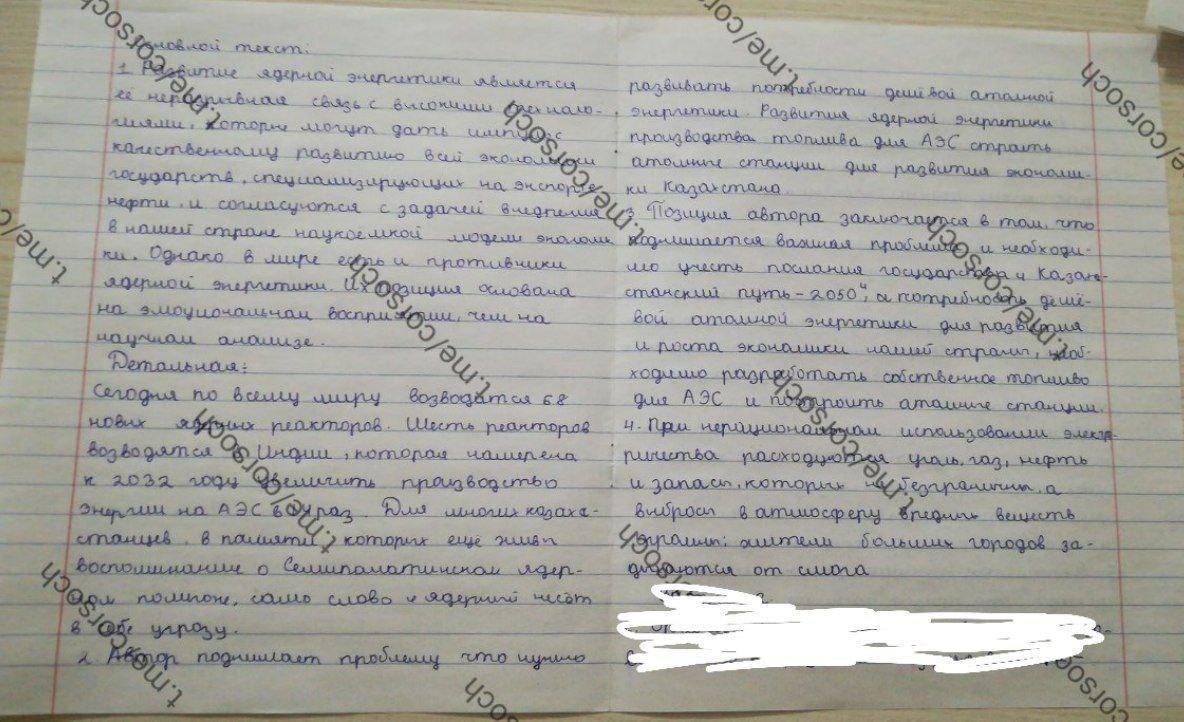 основной текст:
1 Развитие ядерной энергетики является
её неразрывная связь с высокими техноло-
гиями, которые могут дать импульс
качественному развитию всей экономики
государств, специализирующих на экспорте
нефти, и согласуются с задачей внедрения
в нашей стране наукоемкой модели эконом
ки. Однако в мире есть и противники
ядерной энергетики. Их позиция основана
на эмоциональном восприятии, чем на
научном анализе.
Детальная:
Сегодня по всему миру возводятся 68
новых ядерных реакторов. Шесть реакторов
возводятся в Индии, которая намерена
к 2032 году увеличить производство
энергии на АЭС в раз. Для многих казах-
станцев, в памяти которых ещё живы
воспоминание о Семипалатинском ядер-
ном полигоне, само слово « ядерный несёт
в себе угрозу.
2. Автор поднимает проблему что нужно
развивать потребности дешёвой атомной
энергетики. Развития ядерной энергетики
производства топлива для АЭС строить
атомные станции для развития экономи-
ки Казахстана.
3. Позиция автора заключается в том, что
поднимается важная проблема и необходи-
мо учесть послания государства « Казах-
станский путь - 2050", а потребность дешё-
вой атомной энергетики для развития
и роста экономики нашей страны, необ-
ходимо разработать собственное топливо
для АЭС и построить атомные станции.
4. При нерациональном использовании элект-
ричества расходуются уголь, газ, нефть
и запасы, которых безграничны, а
выбросы в атмосферу вредных веществ
огромны: жители больших городов за-
дыхаются от смога
t.me/corsoch
t.me/corsoch
t.me/corsoch
t.me/corsoch
t.me/corsoch
t.me/corsoch
t.me/corsoch
t.me/corsoch